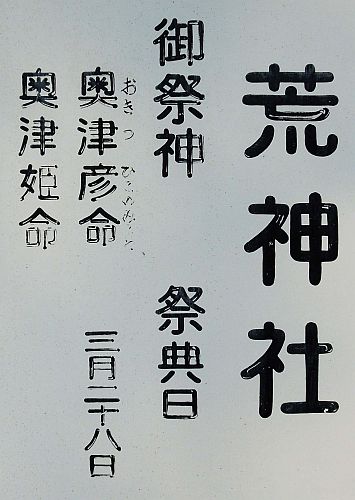 荒神社
御祭神
祭典日
奥津彦命
おきつひこのみこと
三月二十八日
奥津姫命